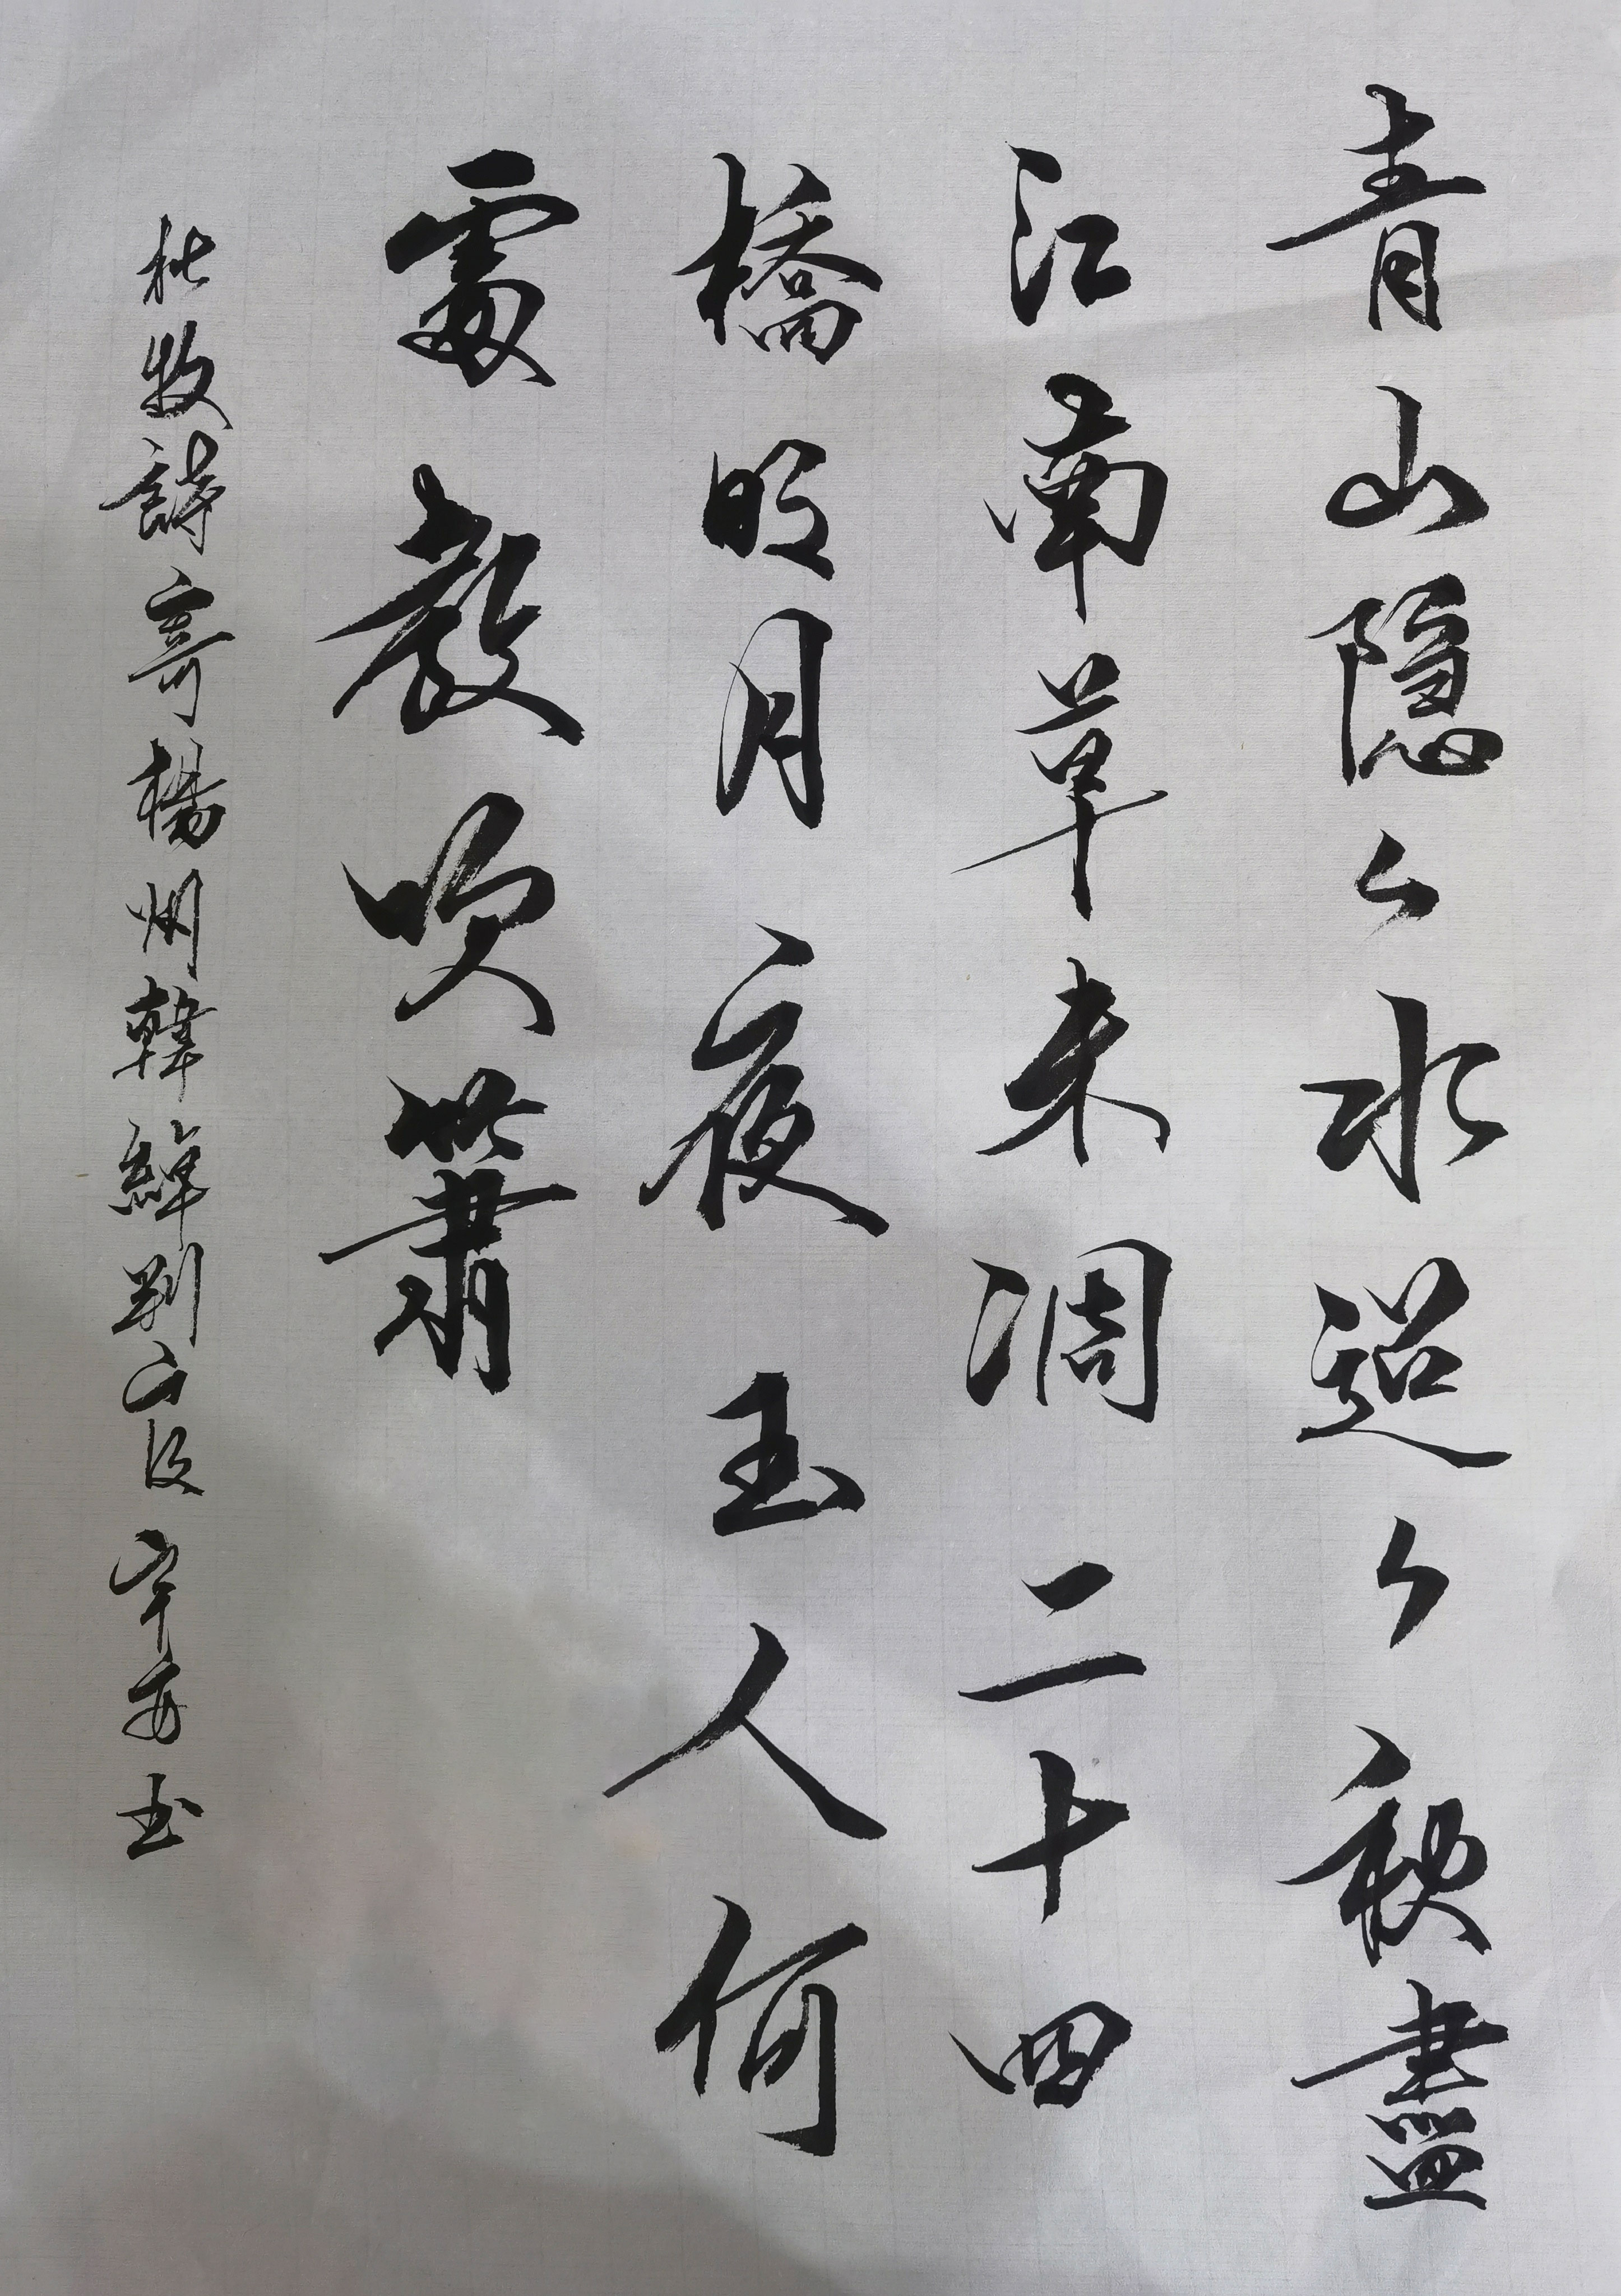 青山隐々水迢々秋盡
江南草未凋二十四
橋明月夜玉人何
處教吹簫
杜牧詩寄楊州韓綽判官